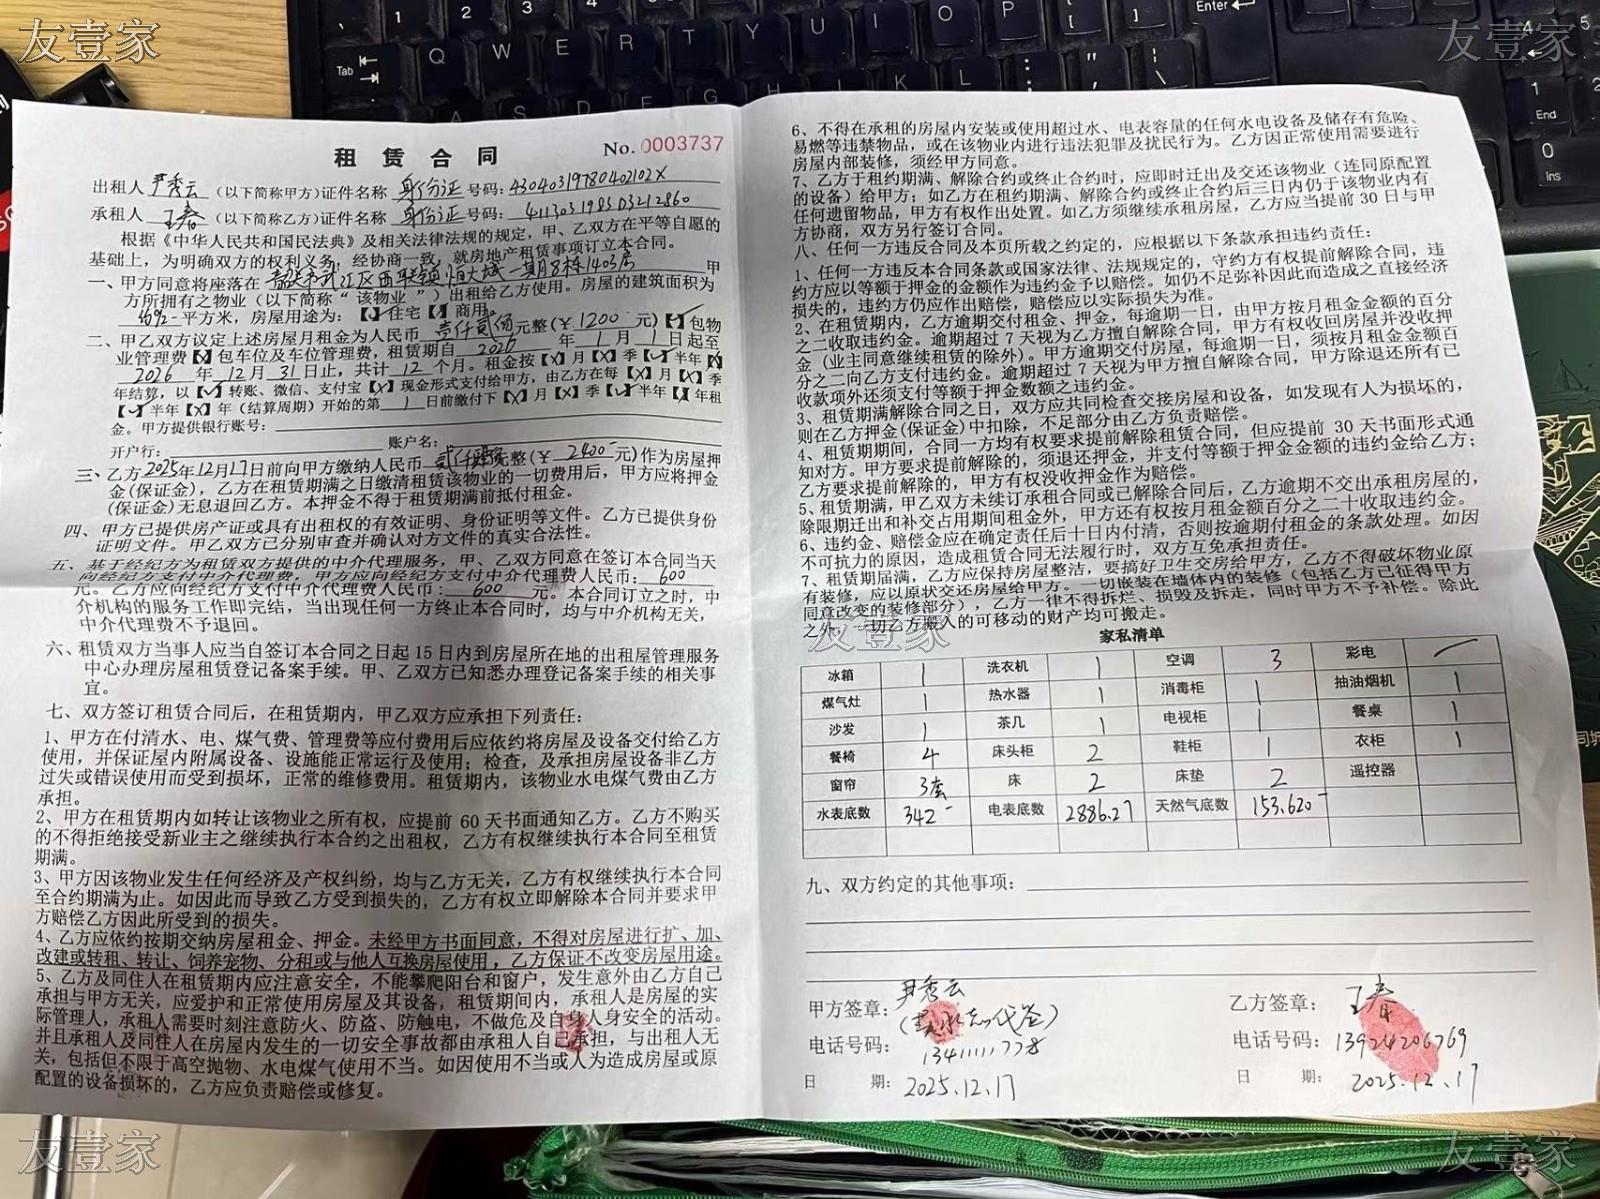 友壹家
友壹家
租 赁 合 同 No. 0003737
出租人 尹秀云 （以下简称甲方）证件名称 身份证 号码：43040319780402102X
承租人 王春 （以下简称乙方）证件名称 身份证 号码：411303198503212860
根据《中华人民共和国民法典》及相关法律法规的规定，甲、乙双方在平等自愿的
基础上，为明确双方的权利义务，经协商一致，就房地产租赁事项订立本合同。
一、甲方同意将座落在 韶关市武江区西联镇恒大城一期8栋1403房 甲
方所拥有之物业（以下简称“ 该物业 ”）出租给乙方使用。房屋的建筑面积为
约92 平方米，房屋用途为：【✓】住宅【 】商用。
二、甲乙双方议定上述房屋月租金为人民币 壹仟贰佰 元整(￥ 1200 元)【✓】包物
业管理费【X】包车位及车位管理费，租赁期自 2026 年 1 月 1 日起至
2026 年 12 月 31 日止，共计 12 个月。租金按【X】月【X】季【✓】半年【X】
年结算，以【✓】转账、微信、支付宝【X】现金形式支付给甲方，由乙方在每【X】月【X】季
【✓】半年【X】年（结算周期）开始的第 1 日前缴付下【X】月【X】季【✓】半年【 】年租
金。甲方提供银行账号：
开户行： 账户名：
三、乙方 2025年12月17日前向甲方缴纳人民币 贰仟肆佰元整(￥ 2400 元)作为房屋押
金(保证金)，乙方在租赁期满之日缴清租赁该物业的一切费用后，甲方应将押金
(保证金)无息退回乙方。本押金不得于租赁期满前抵付租金。
四、甲方已提供房产证或具有出租权的有效证明、身份证明等文件。乙方已提供身份
证明文件。甲乙双方已分别审查并确认对方文件的真实合法性。
五、基于经纪方为租赁双方提供的中介代理服务，甲、乙双方同意在签订本合同当天
向经纪方支付中介代理费，甲方应向经纪方支付中介代理费人民币： 600
元。乙方应向经纪方支付中介代理费人民币： 600 元。本合同订立之时，中
介机构的服务工作即完结，当出现任何一方终止本合同时，均与中介机构无关，
中介代理费不予退回。
六、租赁双方当事人应当自签订本合同之日起 15 日内到房屋所在地的出租屋管理服务
中心办理房屋租赁登记备案手续。甲、乙双方已知悉办理登记备案手续的相关事
宜。
七、双方签订租赁合同后，在租赁期内，甲乙双方应承担下列责任：
1、甲方在付清水、电、煤气费、管理费等应付费用后应依约将房屋及设备交付给乙方
使用，并保证屋内附属设备、设施能正常运行及使用；检查，及承担房屋设备非乙方
过失或错误使用而受到损坏，正常的维修费用。租赁期内，该物业水电煤气费由乙方
承担。
2、甲方在租赁期内如转让该物业之所有权，应提前 60 天书面通知乙方。乙方不购买
的不得拒绝接受新业主之继续执行本合约之出租权，乙方有权继续执行本合同至租赁
期满。
3、甲方因该物业发生任何经济及产权纠纷，均与乙方无关，乙方有权继续执行本合同
至合约期满为止。如因此而导致乙方受到损失的，乙方有权立即解除本合同并要求甲
方赔偿乙方因此所受到的损失。
4、乙方应依约按期交纳房屋租金、押金。未经甲方书面同意，不得对房屋进行扩、加、
改建或转租、转让、饲养宠物、分租或与他人互换房屋使用，乙方保证不改变房屋用途。
5、乙方及同住人在租赁期内应注意安全，不能攀爬阳台和窗户，发生意外由乙方自己
承担与甲方无关，应爱护和正常使用房屋及其设备，租赁期间内，承租人是房屋的实
际管理人，承租人需要时刻注意防火、防盗、防触电，不做危及自身人身安全的活动。
并且承租人及同住人在房屋内发生的一切安全事故都由承租人自己承担，与出租人无
关，包括但不限于高空抛物、水电煤气使用不当。如因使用不当或人为造成房屋或原
配置的设备损坏的，乙方应负责赔偿或修复。
6、不得在承租的房屋内安装或使用超过水、电表容量的任何水电设备及储存有危险、
易燃等违禁物品，或在该物业内进行违法犯罪及扰民行为。乙方因正常使用需要进行
房屋内部装修，须经甲方同意。
7、乙方于租约期满、解除合约或终止合约时，应即时迁出及交还该物业（连同原配置
的设备）给甲方；如乙方在租约期满、解除合约或终止合约后三日内仍于该物业内有
任何遗留物品，甲方有权作出处置。如乙方须继续承租房屋，乙方应当提前 30 日与甲
方协商，双方另行签订合同。
八、任何一方违反合同及本页所载之约定的，应根据以下条款承担违约责任：
1、任何一方违反本合同条款或国家法律、法规规定的，守约方有权提前解除合同，违
约方应以等额于押金的金额作为违约金予以赔偿。如仍不足弥补因此而造成之直接经济
损失的，违约方仍应作出赔偿，赔偿应以实际损失为准。
2、在租赁期内，乙方逾期交付租金、押金，每逾期一日，由甲方按月租金金额的百分
之二收取违约金。逾期超过 7 天视为乙方擅自解除合同，甲方有权收回房屋并没收押
金 (业主同意继续租赁的除外)。甲方逾期交付房屋，每逾期一日，须按月租金金额百
分之二向乙方支付违约金。逾期超过 7 天视为甲方擅自解除合同，甲方除退还所有已
收款项外还须支付等额于押金数额之违约金。
3、租赁期满解除合同之日，双方应共同检查交接房屋和设备，如发现有人为损坏的，
则在乙方押金(保证金)中扣除，不足部分由乙方负责赔偿。
4、租赁期期间，合同一方均有权要求提前解除租赁合同，但应提前 30 天书面形式通
知对方。甲方要求提前解除的，须退还押金，并支付等额于押金金额的违约金给乙方；
乙方要求提前解除的，甲方有权没收押金作为赔偿。
5、租赁期满，甲甲乙双方未续订承租合同或已解除合同后，乙方逾期不交出承租房屋的，
除限期迁出和补交占用期间租金外，甲方还有权按月租金额百分之二十收取违约金。
6、违约金、赔偿金应在确定责任后十日内付清，否则按逾期付租金的条款处理。如因
不可抗力的原因，造成租赁合同无法履行时，双方互免承担责任。
7、租赁期届满，乙方应保持房屋整洁，要搞好卫生交房给甲方，乙方不得破坏物业原
有装修，应以原状交还房屋给甲方。一切嵌装在墙体内的装修（包括乙方已征得甲方
同意改变的装修部分），乙方一律不得拆烂、损毁及拆走，同时甲方不予补偿。除此
之外，一切乙方搬入的可移动的财产均可搬走。
友壹家
家私清单
冰箱 1 洗衣机 1 空调 3 彩电 —
煤气灶 1 热水器 1 消毒柜 1 抽油烟机 1
沙发 1 茶几 1 电视柜 1 餐桌 1
餐椅 4 床头柜 2 鞋柜 1 衣柜 1
窗帘 3套 床 2 床垫 2 遥控器
水表底数 342 电表底数 2886.27 天然气底数 153.620
九、双方约定的其他事项：
甲方签章： 尹秀云 乙方签章： 王春
代签）
电话号码： 13411111778 电话号码： 13924206769
日 期： 2025.12.17 日 期： 2025.12.17
友壹家
友壹家